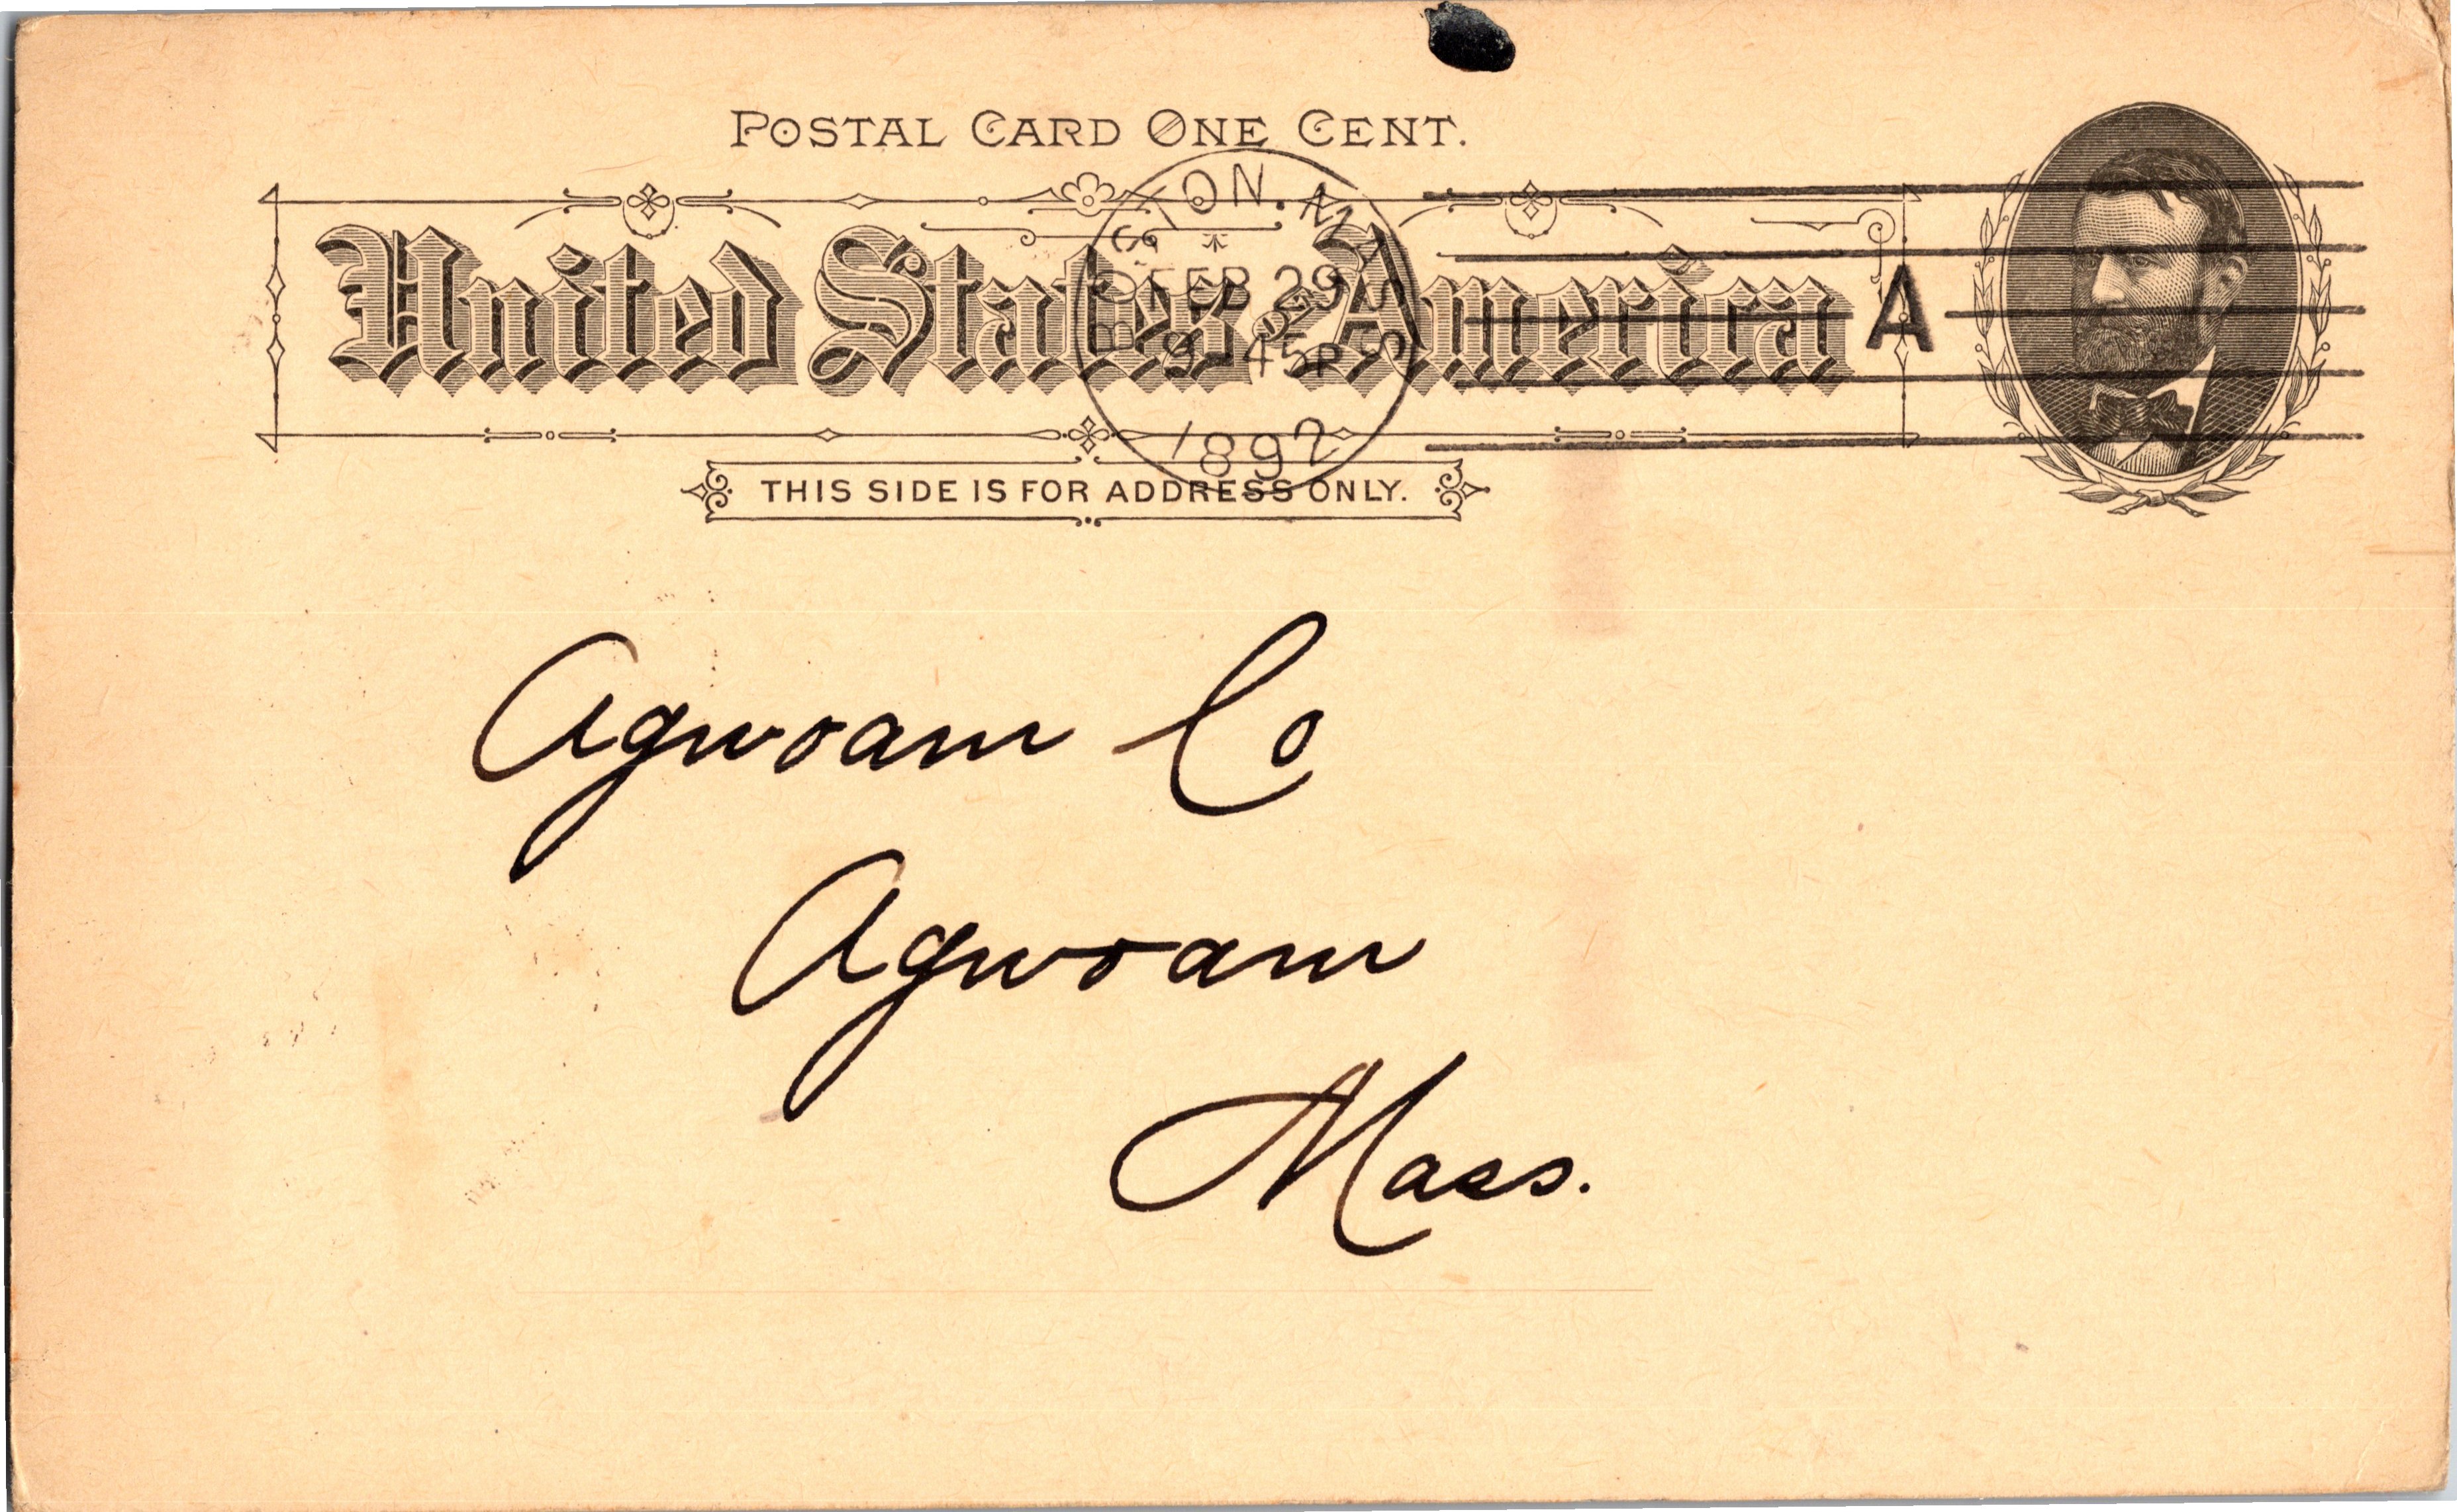 POSTAL CARD ONE CENT.
United States of America
BOSTON. MASS
FEB 29
9-45P
1892
A
THIS SIDE IS FOR ADDRESS ONLY.
Agwoam Co
Agwoam
Mass.